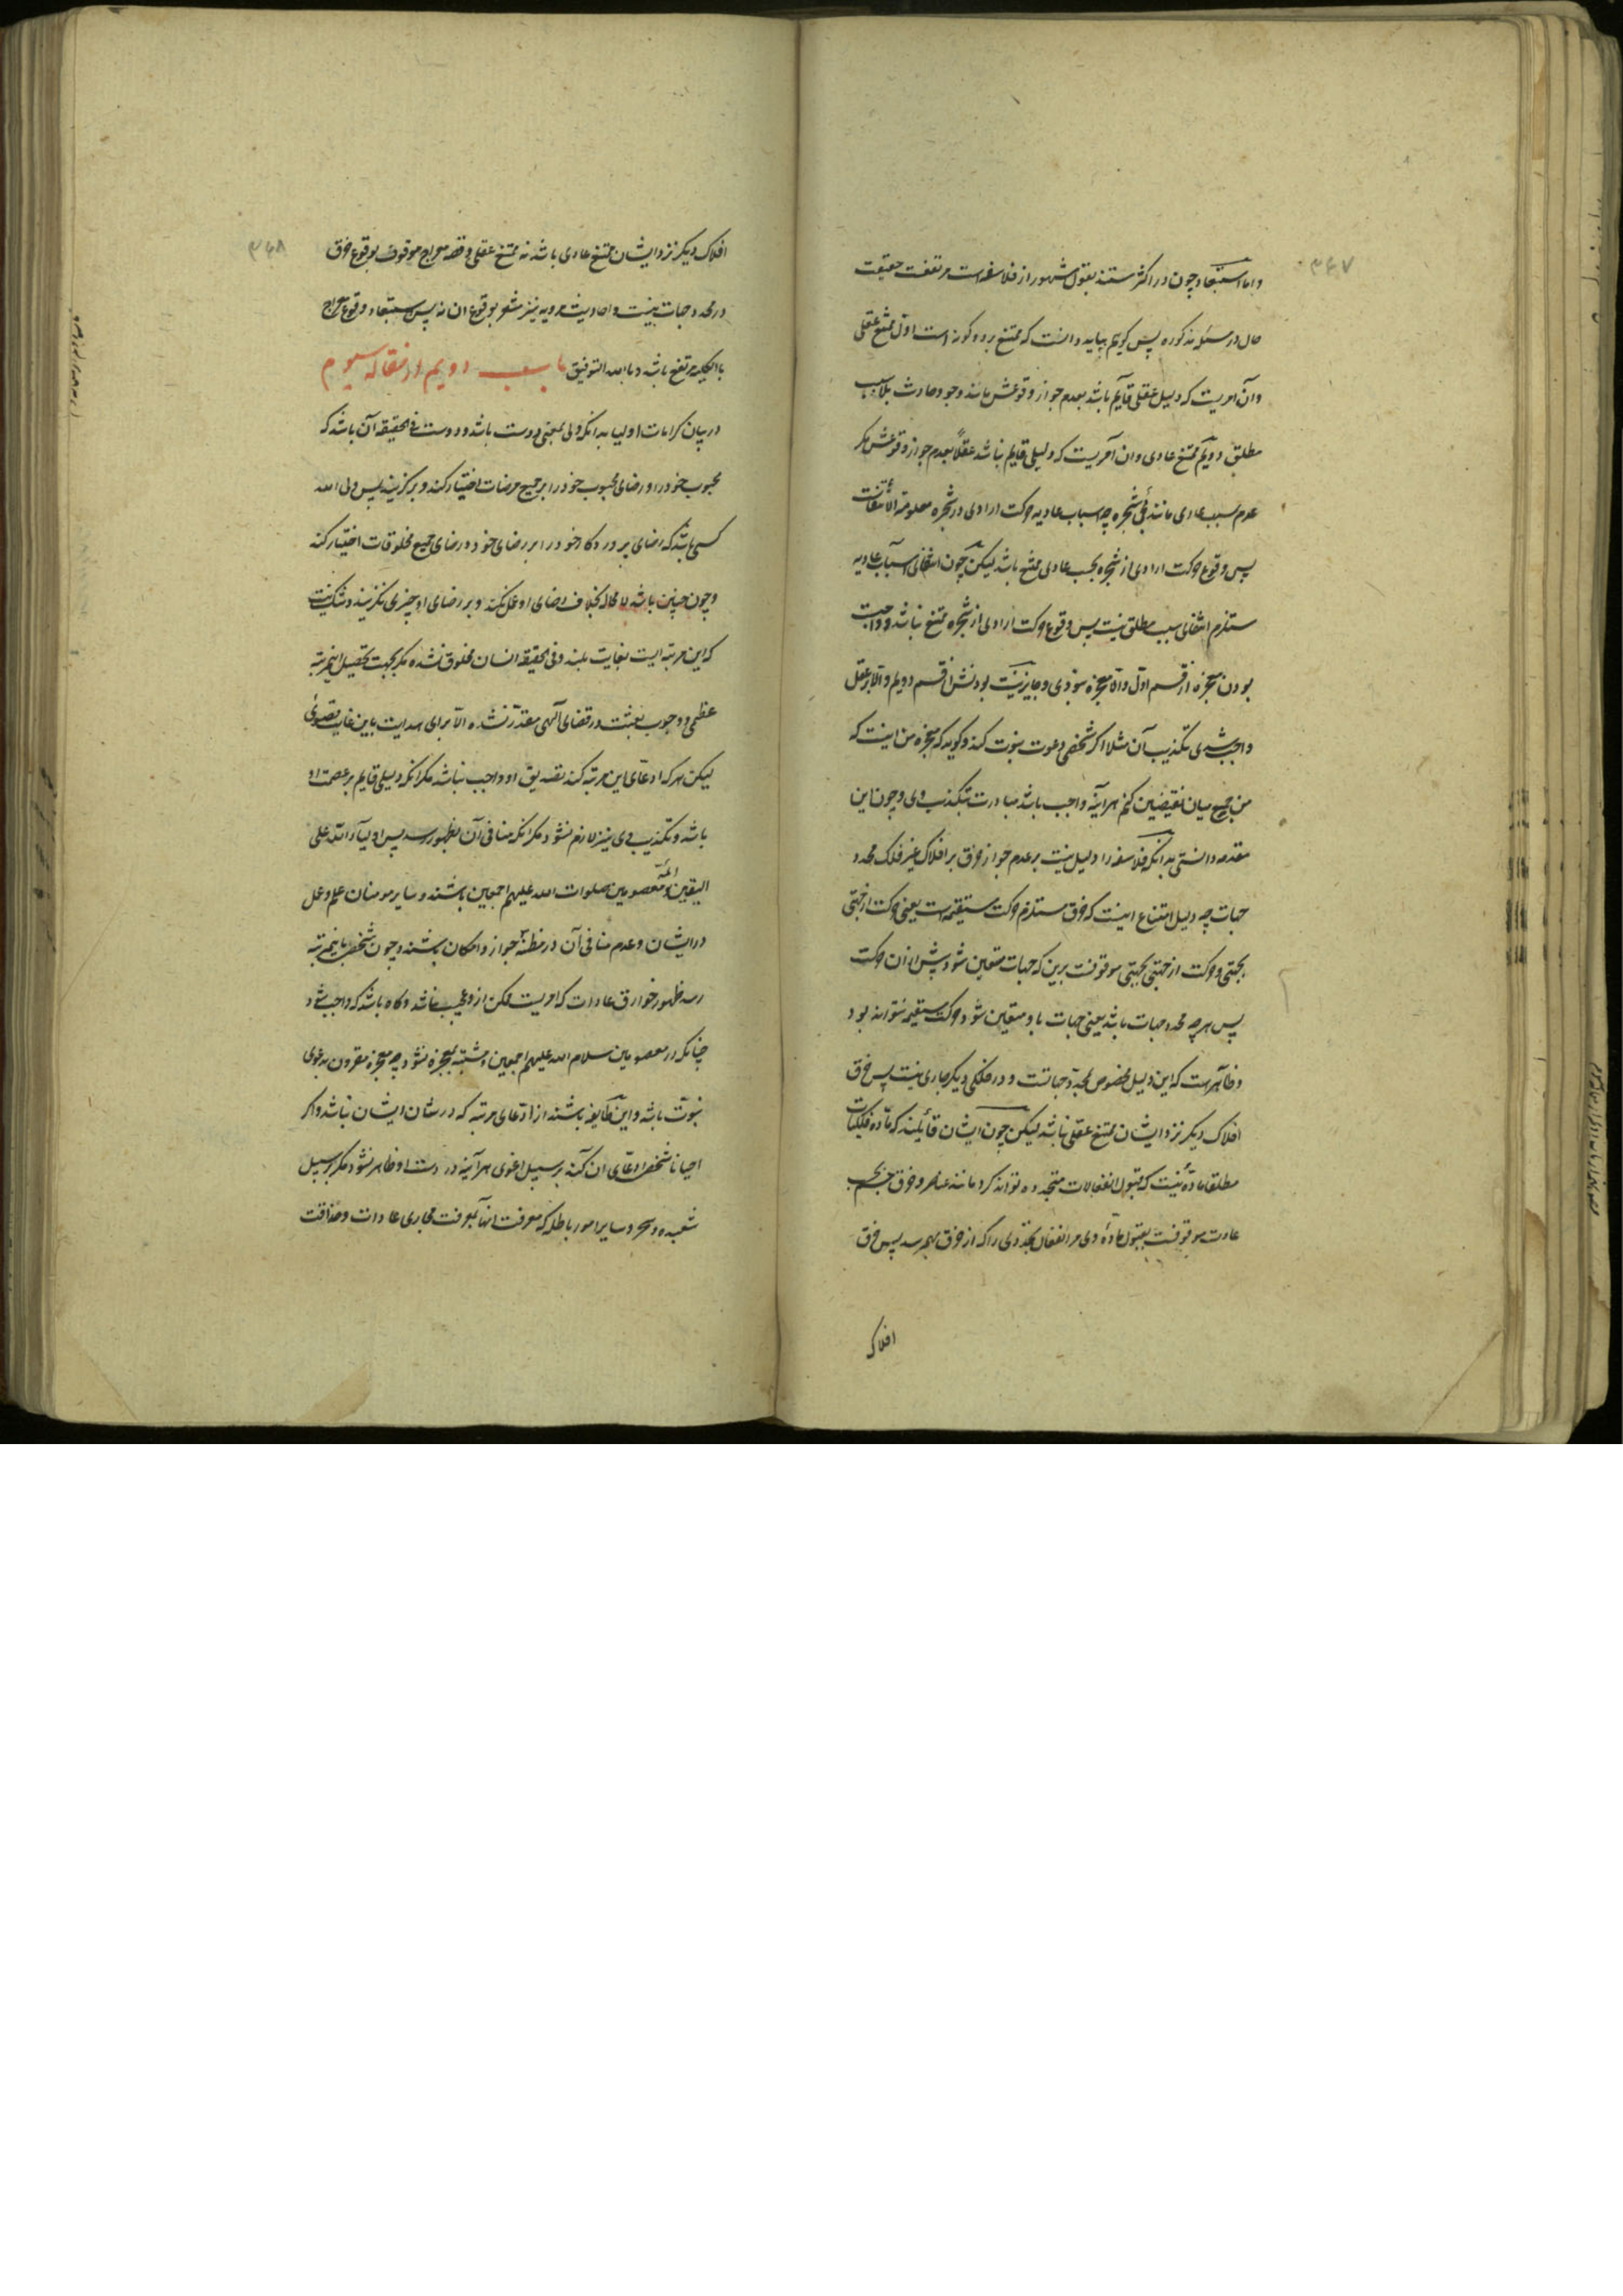 ۳۶۷
و اما استبعاد چون در اکثر مستند بقول مشهور از فلاسفه است مرتفعست حقیقت
حال در مسئله مذکوره پس کویم بباید دانست که ممتنع بر دو کونه است اول ممتنع عقلی
و آن امریست که دلیل عقلی قایم باشد بعدم جواز وقوعش مانند وجود حادث بلا سبب
مطلق دویم ممتنع عادی و ان امریست که دلیلی قایم نباشد عقلاً بعدم جواز وقوعش مکر
عدم سبب عادی مانند شجره چه اسباب عادیه حرکت ارادی در شجره معلومة الانتفاست
پس وقوع حرکت ارادی از شجره بحسب عادی ممتنع باشد لیکن چون انتفای اسباب عادیه
مستلزم انتفای سبب مطلق نیست پس وقوع حرکت ارادی از شجره ممتنع نباشد و واجبست
بودن معجزه از قسم اول والا معجزه نبودی و جایز نیست بودنش از قسم دویم والا بر عقل
واجب شدی تکذیب آن مثلا اکر شخصی دعوت نبوت کند و کوید که معجزه من اینست که
من جمع میان نقیضین کنم هر آینه واجب باشد مبادرت بتکذیب وی و چون این
مقدمه دانستی بدانکه فلاسفه را دلیل نیست بر عدم جواز خرق بر افلاک غیر فلک محدد
جهات چه دلیل امتناع اینست که خرق مستلزم حرکت مستقیمه است یعنی حرکت از جهتی
بجهتی و حرکت از جهتی بجهتی موقوفست برین که جهات متعین شود پیش از ان حرکت
پس هر چه محدد جهات باشد یعنی جهات باو متعین شود حرکت مستقیمه نتواند بود
و ظاهر است که این دلیل مخصوص بمحدد جهاتست و در فلکی دیکر جاری نیست پس خرق
افلاک دیکر نزد ایشان ممتنع عقلی نباشد لیکن چون ایشان قائلند که ماده فلکیات
مطلقا ماده نیست که قبول انفعالات متجدده تواند کرد مانند عناصر و خرق جسم بحسب
عادت موقوفست بقبول ماده وی مر انفعال تجددی را که از خرق بهم رسد پس خرق
افلاک
۳۶۸
افلاک دیکر نزد ایشان ممتنع عادی باشد نه ممتنع عقلی و قصه معراج موقوف بوقوع خرق
در محدد جهات نیست و احادیث مرویه نیز مشعر بوقوع ان نه پس استبعاد وقوع معراج
بالکلیه مرتفع باشد و بالله التوفیق باب دویم از مقاله سیوم
در بیان کرامات اولیا بدانکه ولی بمعنی دوست باشد و دوست فی الحقیقه آن باشد که
محبوب خود را و رضای محبوب خود را بر جمیع مرضات اختیار کند و برکزیند پس ولی الله
کسی باشد که رضای پروردکار خود را بر رضای خود و رضای جمیع مخلوقات اختیار کند
و چون چنین باشد لا محاله بخلاف رضای او عمل نکند و بر رضای او چیزی نکزیند و شک نیست
که این مرتبه ایست بغایت بلند و فی الحقیقه انسان مخلوق نشده مکر بجهت تحصیل این مرتبه
عظمی و وجوب بعثت در قضای الهی مقدر نشده الا برای هدایت باین غایت قصوی
لیکن هر که ادعای این مرتبه کند تصدیق او واجب نباشد مکر انکه دلیلی قایم بر عصمت او
باشد و تکذیب وی نیز لازم نشود مکر انکه منافی آن بظهور رسد پس اولیاء الله علی
الیقین ائمه معصومین صلوات الله علیهم اجمعین باشند و سایر مومنان علم و عمل
در ایشان و عدم منافی آن در مظنه جواز و امکان باشند و چون شخص باین مرتبه
رسد ظهور خوارق عادات که امریست ممکن ازو عجیب نباشد و کاه باشد که واجب شود
چنانکه در معصومین سلام الله علیهم اجمعین و مشتبه بمعجزه نشود چه معجزه مقرون بدعوی
نبوت باشد و این طایفه باشند از ادعای مرتبه که در شان ایشان نباشد و اکر
احیانا شخص ادعای ان کند بر سبیل اغوی هر آینه در دست او ظاهر نشود مکر بر سبیل
شعبده و سحر و سایر امور باطله که معرفت انها بمعرفت مجاری عادات و حذاقت